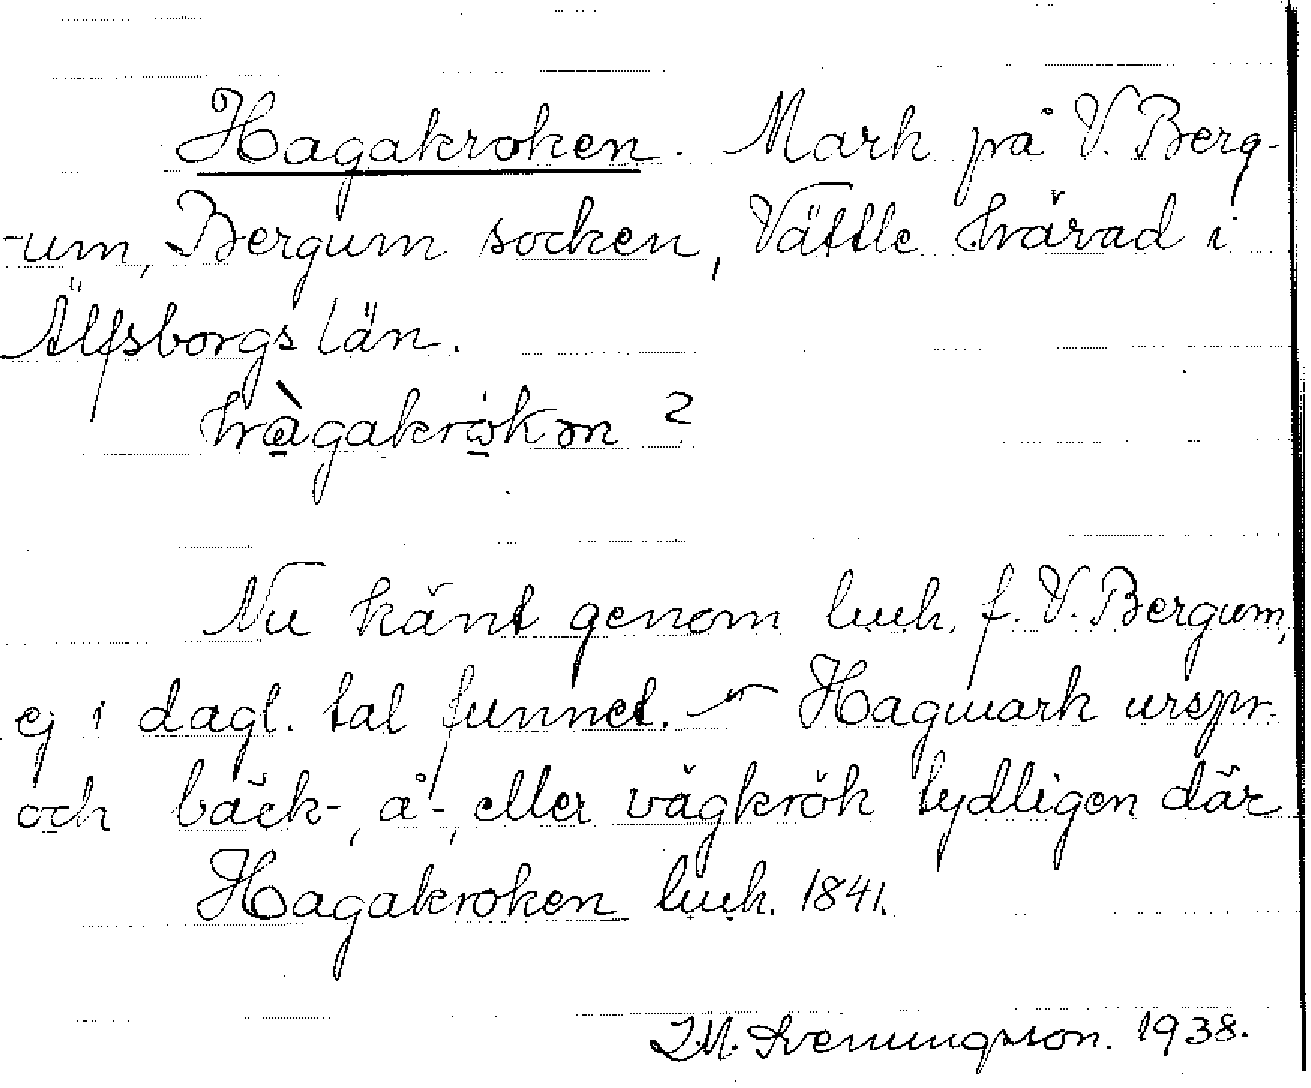 Hagakroken. Mark på V. Berg-
-um, Bergum socken, Vättle härad i
Älfsborgs län.
hàgakrok ən 2
Nu känt genom luuh. f. V. Bergum,
ej i dagl. tal funnet. — Hagmark urspr.
och bäck-, å-, eller vägkrök tydligen där
Hagakroken luuh. 1841.
I.M. Svenungsson. 1938.